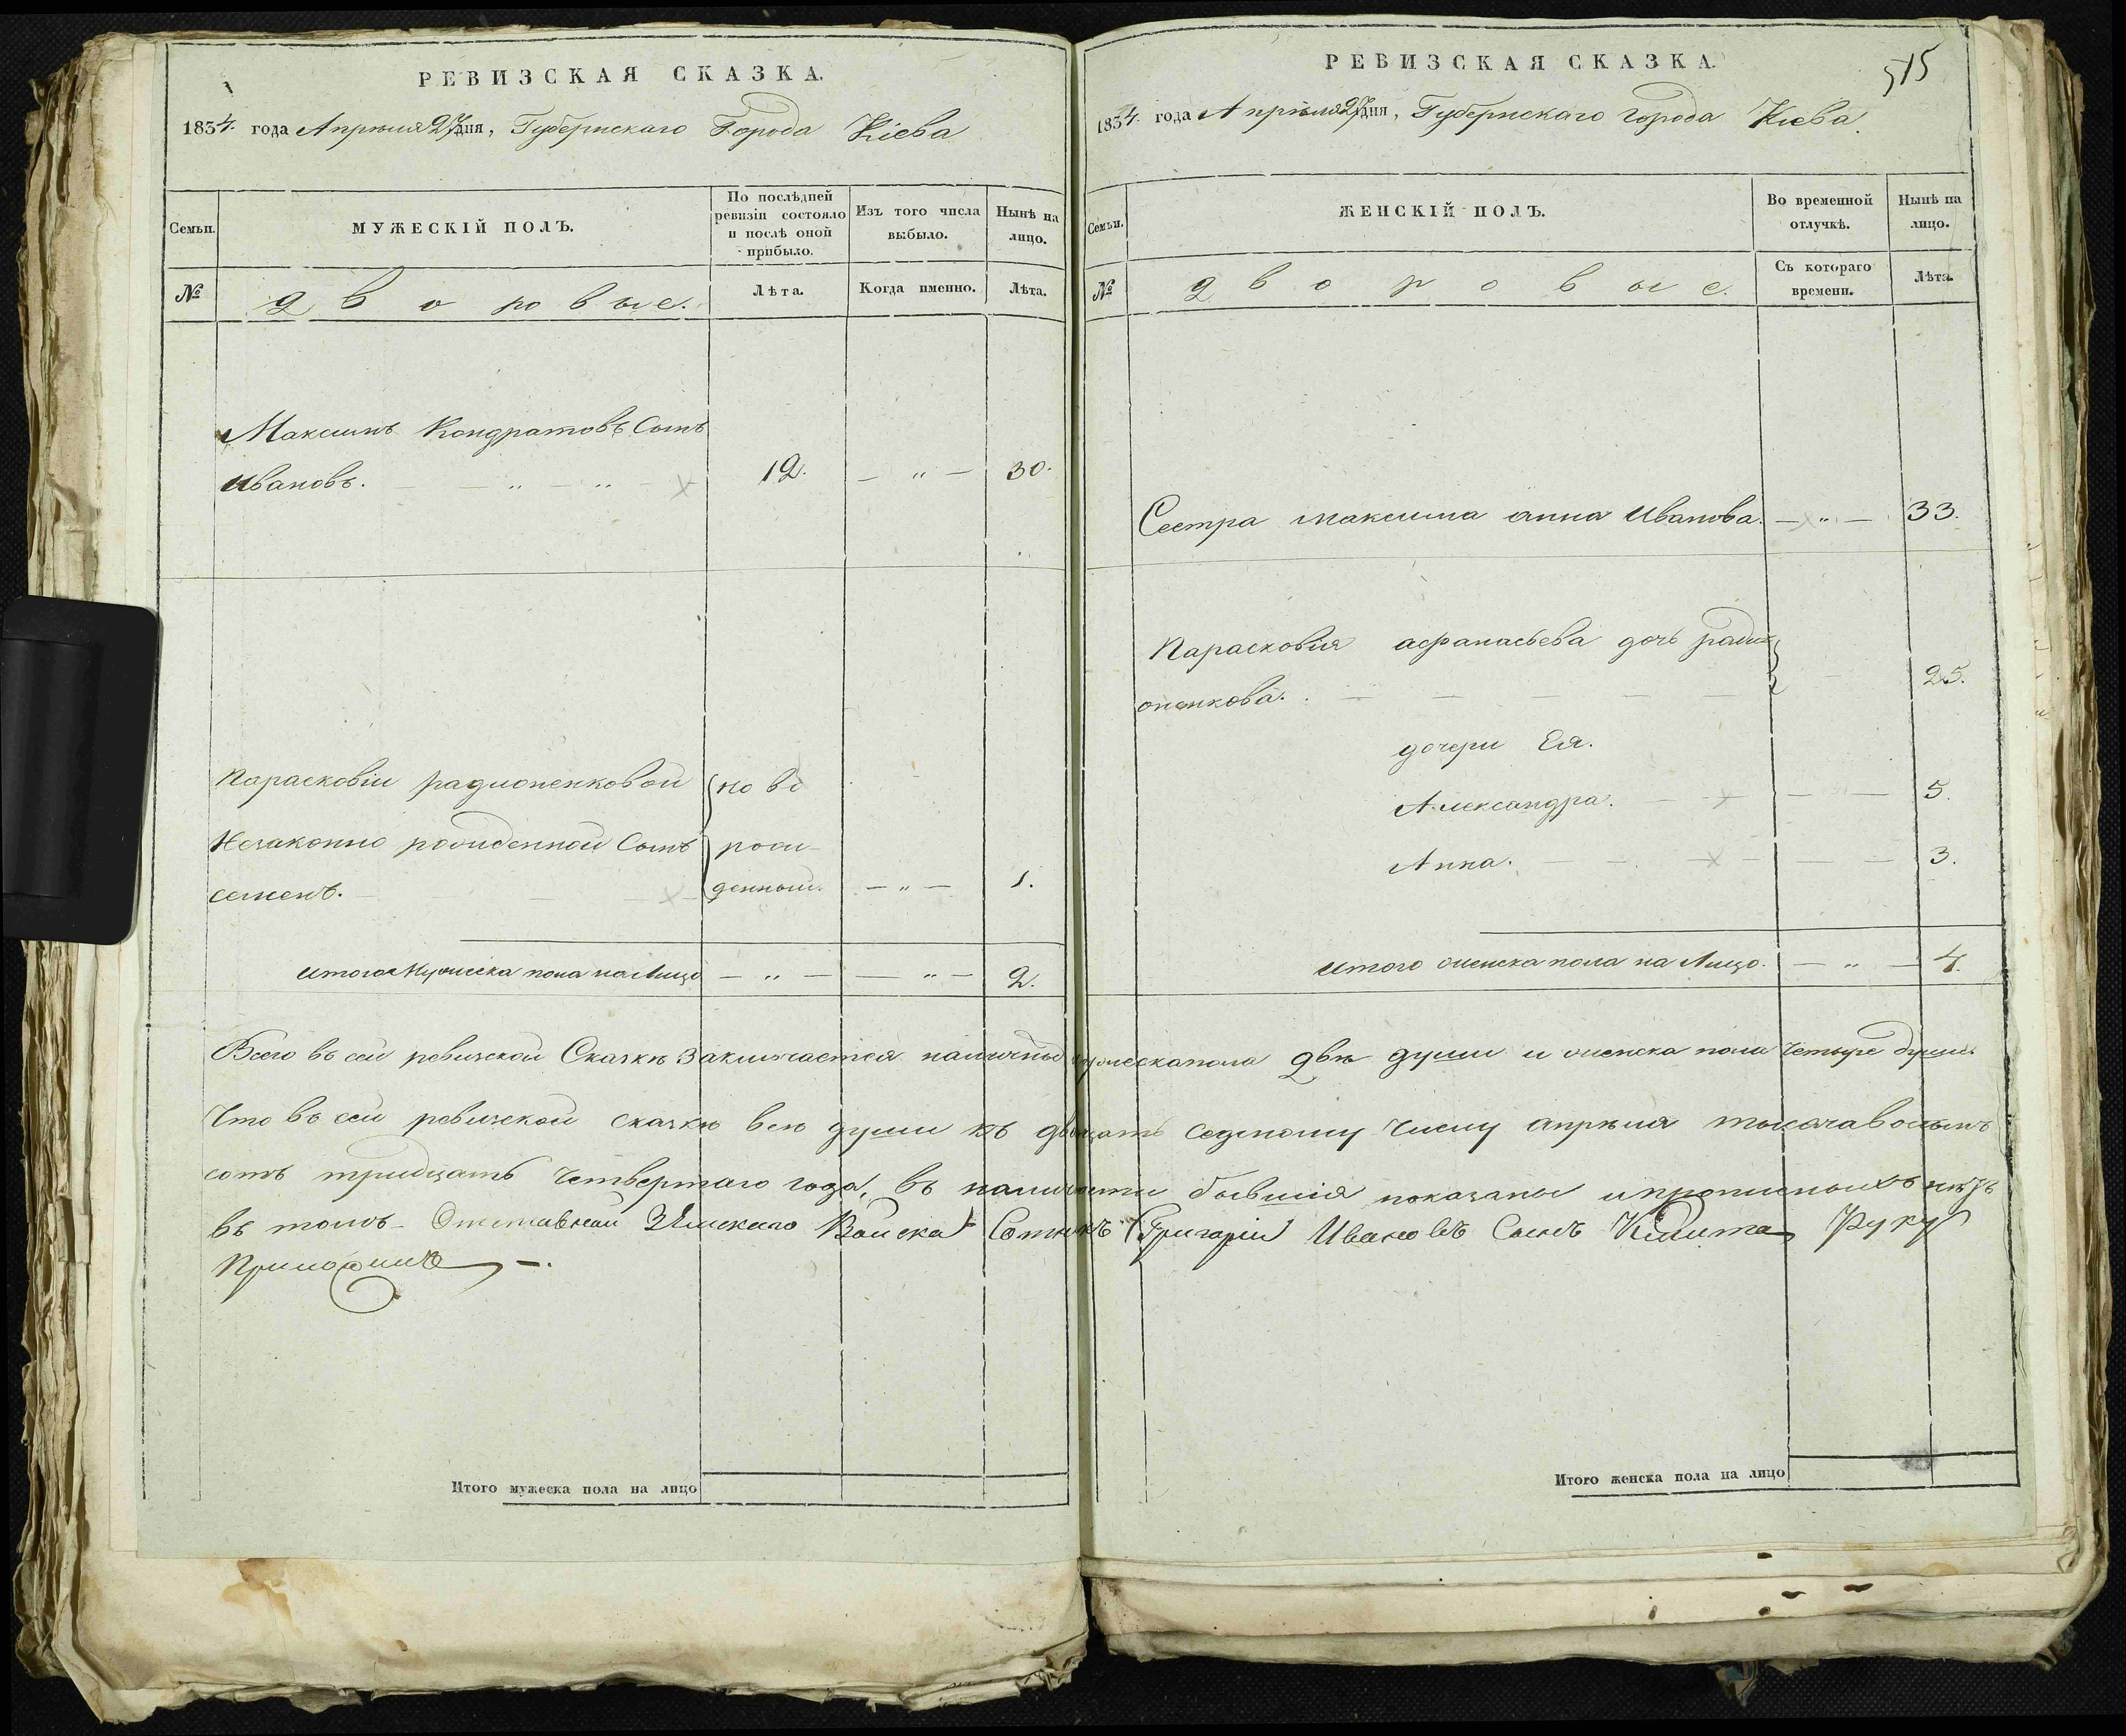 РЕВИЗСКАЯ СКАЗКА.
1834. года Апрѣля 27 дня, Губернскаго Города Кіева
Семьи.
МУЖЕСКІЙ ПОЛЪ.
По послѣдней ревизіи состояло и послѣ оной прибыло.
Изъ того числа выбыло.
Нынѣ на лицо.
№
дворовые.
Лѣта.
Когда именно.
Лѣта.
Максимъ Кондратовъ Сынъ
Ивановъ. — — „ — „ — 12. — „ — 30.
Парасковіи радионенковой ново
Незаконно рожденной Сынъ рож-
семенъ. — — — — денный. — „ — 1.
итого Мужеска пола на Лицо — „ — — „ — 2.
РЕВИЗСКАЯ СКАЗКА.
515
1834. года Апрѣля 27 дня, Губернскаго города Кіева.
Семьи.
ЖЕНСКІЙ ПОЛЪ.
Во временной отлучкѣ.
Нынѣ на лицо.
№
дворовые.
Съ котораго времени.
Лѣта.
Сестра максима анна Иванова. — „ — 33.
Парасковія афанасьева дочь ради
оненкова. — — — — — 25.
дочери Ея.
Александра. — — — „ — 5.
Анна. — — — — 3.
итого женска пола на Лицо. — „ — 4.
Всего въ сей ревизской Сказкѣ заключается наличныхъ мужеска пола двѣ души и женска пола четыре души.
Что въ сей ревизской сказкѣ всѣ души къ двадцать седьмому числу апрѣля тысяча восемь
сотъ тридцать четвертаго года, въ наличности бывшія показаны и прописныхъ нѣтъ
въ томъ Отставной Войска Сотникъ Григорій Ивановъ Сынъ Руку
Приложилъ —.
Итого мужеска пола на лицо
Итого женска пола на лицо